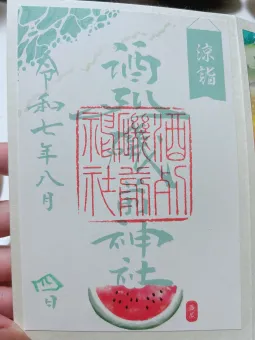 涼詣
酒列磯前神社
酒列
磯前
神社
令和七年八月
四日